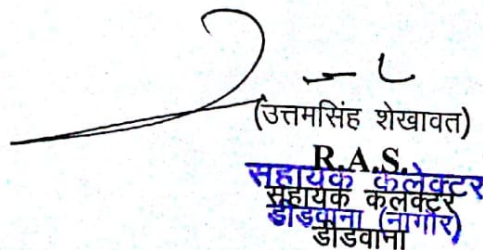 (उत्तमसिंह शेखावत)
R.A.S.
सहायक कलेक्टर
सहायक कलेक्टर
डीडवाना (नागौर)
डीडवाना